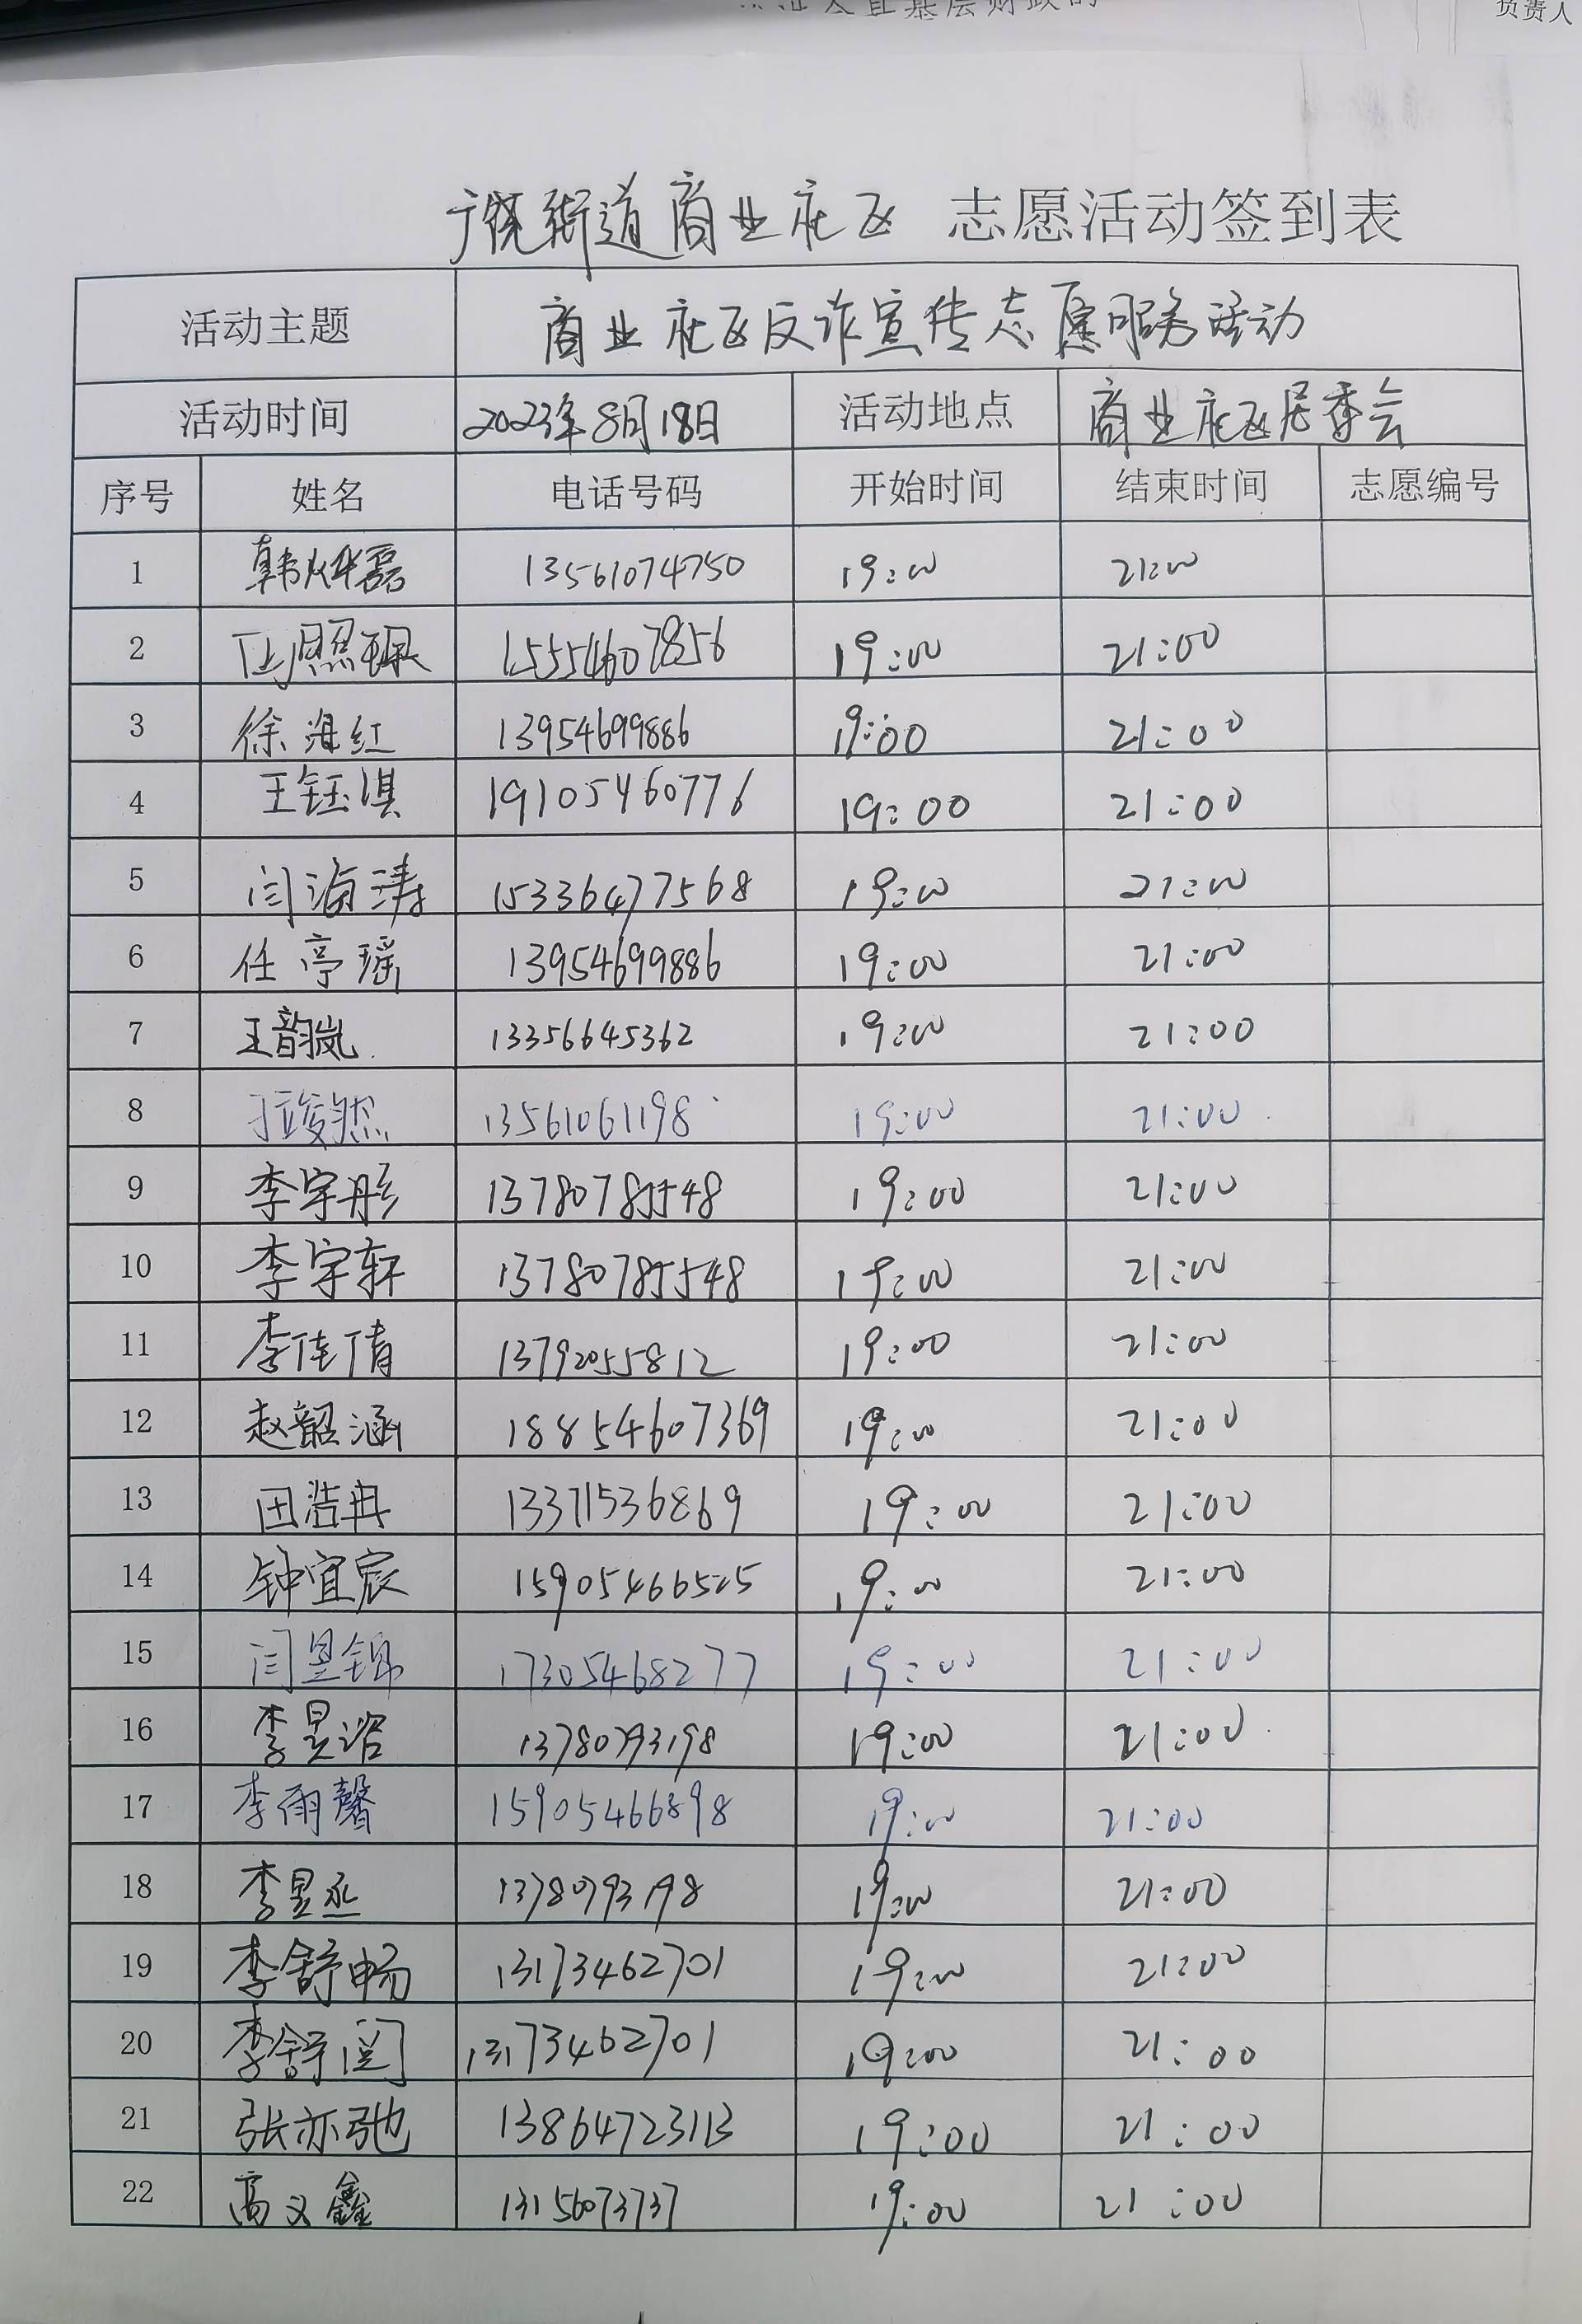 负责人
于饶街道商业社区 志愿活动签到表
活动主题 商业社区反诈宣传志愿服务活动
活动时间 2023年8月18日 活动地点 商业社区居委会
序号 姓名 电话号码 开始时间 结束时间 志愿编号
1 韩烨磊 13561074750 19:00 21:00
2 15554607856 19:00 21:00
3 徐海红 13954699886 19:00 21:00
4 王钰淇 19105460776 19:00 21:00
5 闫海涛 15336477568 19:00 21:00
6 任亭瑶 13954699886 19:00 21:00
7 王韵岚 13356645362 19:00 21:00
8 13561061198 19:00 21:00
9 李宇彤 13780785548 19:00 21:00
10 李宇轩 13780785548 19:00 21:00
11 李佳倩 13792055812 19:00 21:00
12 赵韶涵 18854607369 19:00 21:00
13 田浩冉 13371536869 19:00 21:00
14 钟宜宸 15905466525 19:00 21:00
15 闫昱锦 17305468277 19:00 21:00
16 李昱谘 13780793198 19:00 21:00
17 李雨馨 15905466898 19:00 21:00
18 李昱丞 13780793198 19:00 21:00
19 李舒畅 13173462701 19:00 21:00
20 李舒阅 13173462701 19:00 21:00
21 张亦弛 13864723113 19:00 21:00
22 高义鑫 13156073737 19:00 21:00